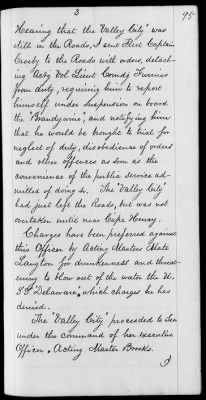 3
95
Hearing that the "Valley City" was
still in the Roads, I sent Fleet Captain
Crosby to the Roads with orders, detach-
ing Actg Vol Lieut Comdg Furniss
from duty, requiring him to report
himself under suspension on board
the "Brandywine", and notifying him
that he would be brought to trial for
neglect of duty, disobedience of orders
and other offences as soon as the
convenience of the public service ad-
mitted of doing so. The "Valley City"
had just left the Roads, but was not
overtaken until near Cape Henry.
Charges have been preferred against
this Officer by Acting Masters Mate
Langton for drunkenness and threat-
ening to blow out of the water the U.
S. S "Delaware", which charges he has
denied.
The "Valley City" proceeded to Sea
under the command of her executive
Officer, Acting Master Brooks.